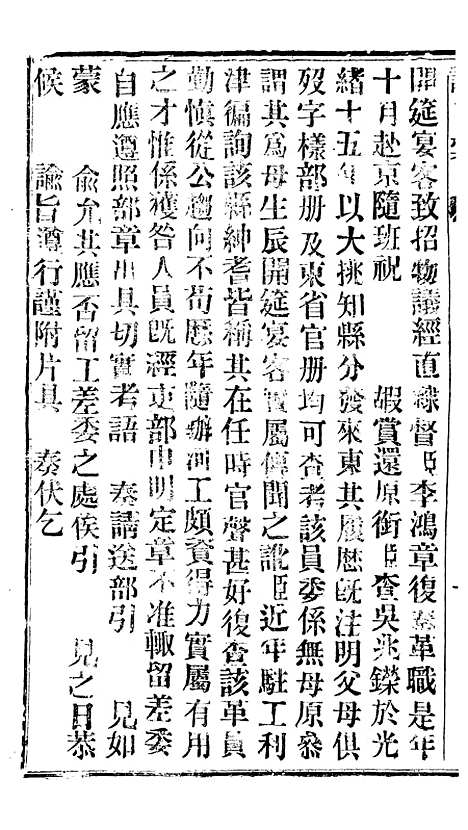 開筵宴客致招物議經直隸督臣李鴻章復奏革職是年
十月赴京隨班祝　　嘏賞還原銜臣查吳兆鑅於光
緒十五年以大挑知縣分發來東其履歷旣注明父母俱
歿字樣部册及東省官册均可查考該員委係無母原叅
謂其爲母生辰開筵宴客實屬傳聞之訛臣近年駐工利
津徧詢該縣紳耆皆稱其在任時官聲甚好復查該革員
勤愼從公趨向不苟歷年隨辦河工頗資得力實屬有用
之才惟係獲咎人員旣經吏部申明定章不准輙留差委
自應遵照部章出具切實考語　　奏請送部引　　見如
蒙　　俞允其應否留工差委之處俟引　　見之日恭
候　　諭旨遵行謹附片具　　奏伏乞